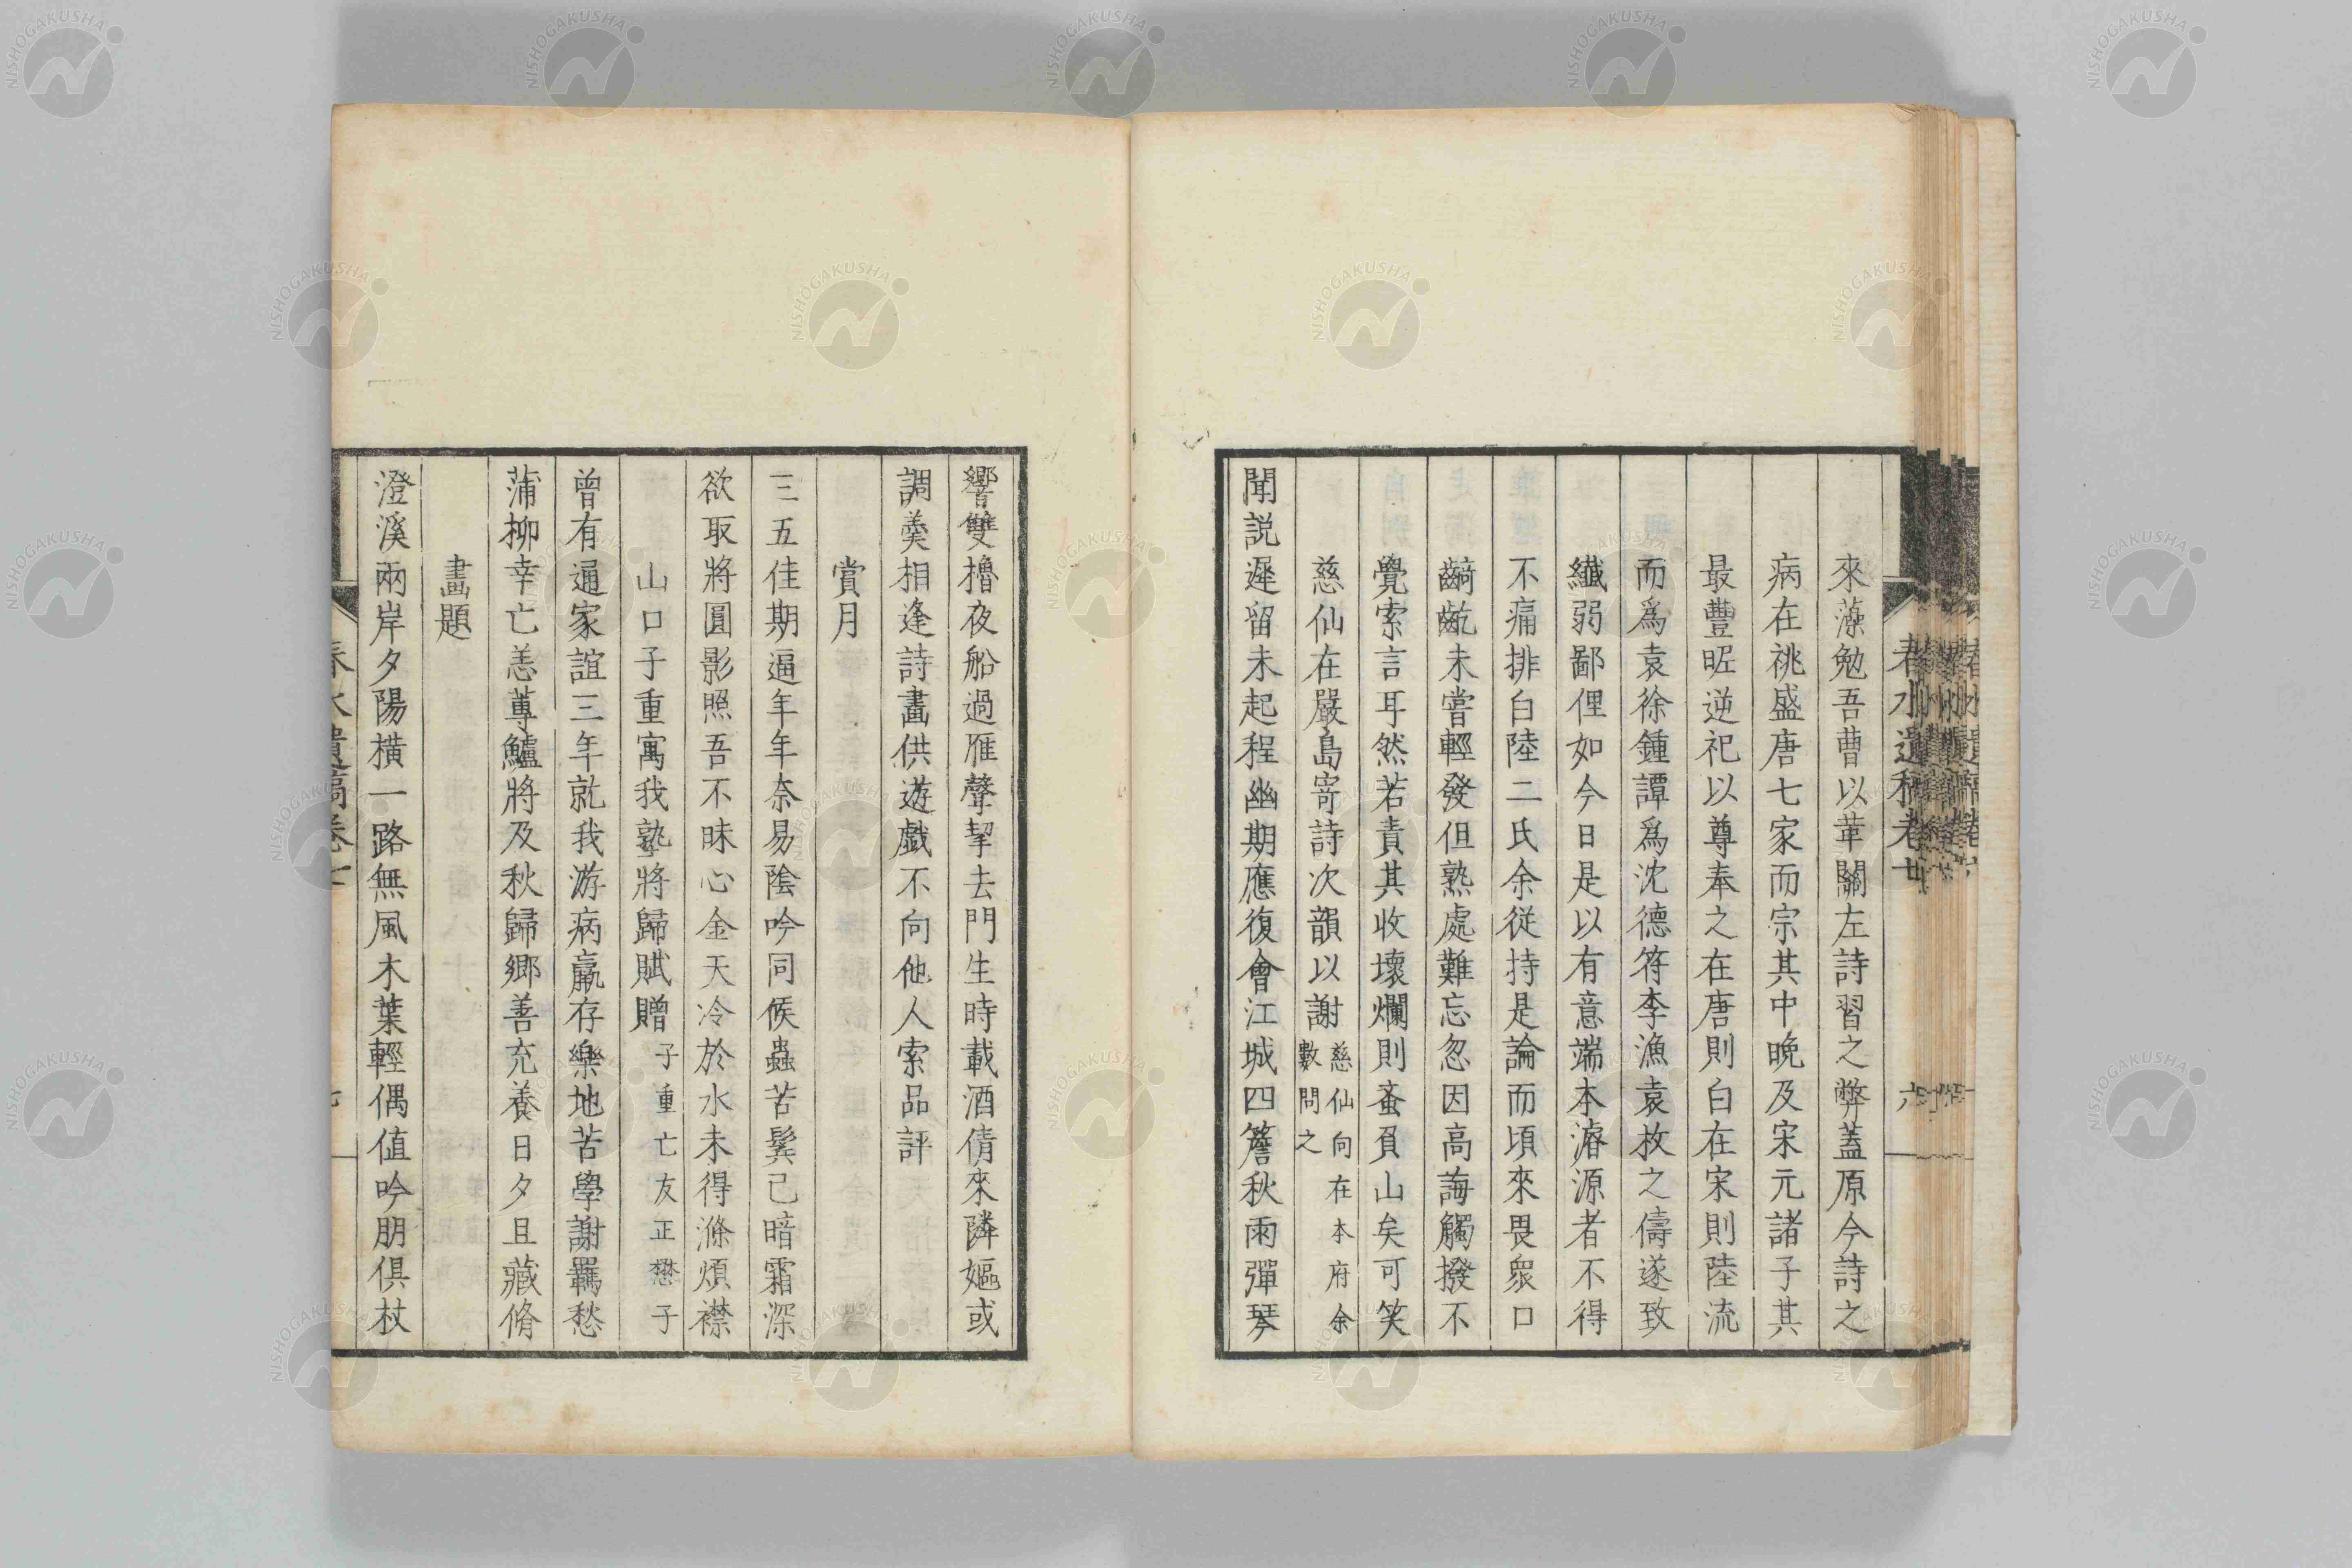 來藻勉吾曹以華關左詩習之弊蓋原今詩之
病在祧盛唐七家而宗其中晩及宋元諸子其
最豐昵逆祀以尊奉之在唐則白在宋則陸流
而爲袁徐鍾譚爲沈德符李漁袁枚之儔遂致
纎弱鄙俚如今日是以有意端本濬源者不得
不痛排白陸二氏余従持是論而頃來畏衆口
齮齕未嘗輕發但熟處難忘忽因高誨觸撥不
覺索言耳然若責其收壞爛則蚉負山矣可笑
慈仙在嚴島寄詩次韻以謝慈仙向在本府余
數問之
聞説遲留未起程幽期應復會江城四簷秋雨彈琴
響雙櫓夜船過雁聲挈去門生時載酒倩來隣嫗或
調羹相逢詩畫供遊戯不向他人索品評
賞月
三五佳期逼年年奈易陰吟同候蟲苦鬂已暗霜深
欲取將圓影照吾不昧心金天冷於水未得滌煩襟
山口子重寓我塾將歸賦贈子重亡友正懋子
曾有通家誼三年就我游病羸存樂地苦學謝羈愁
蒲柳幸亡恙蓴鱸將及秋歸郷善充養日夕且藏脩
畫題
澄溪兩岸夕陽橫一路無風木葉輕偶値吟朋俱杖
春水遺稿卷七
NISHOGAKUSHA